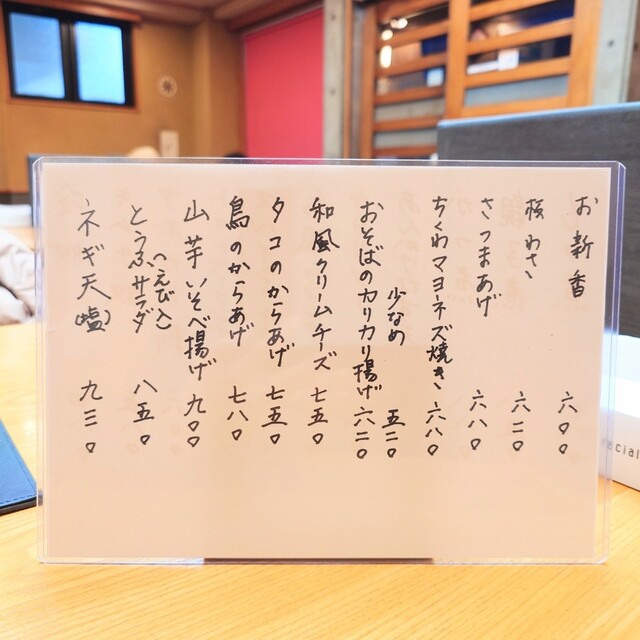 お新香 六〇〇
板わさ 六二〇
さつまあげ 六八〇
ちくわマヨネーズ焼き 六八〇
少なめ 五二〇
おそばのカリカリ揚げ 六二〇
和風クリームチーズ 七五〇
タコのからあげ 七五〇
鳥のからあげ 七八〇
山芋いそべ揚げ 九〇〇
(えびこ)
とうふサラダ 八五〇
ネギ天(塩) 九三〇
ecial